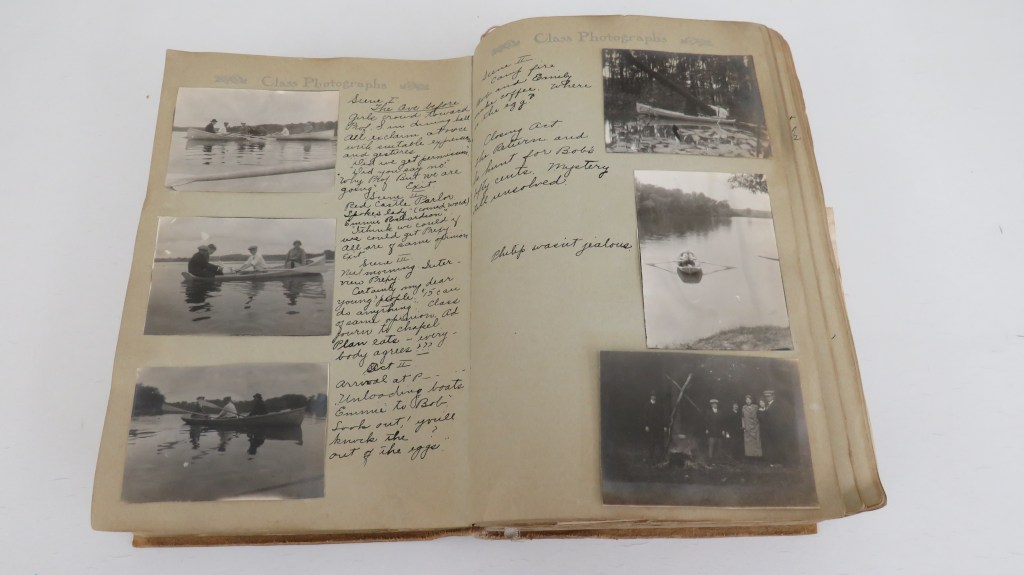 Class Photographs
Scene I
The Ave before
Girls crowd toward
Prof. S in dining hall
All exclaim at once
with suitable expression
and gestures.
we get permission
glad you say no"
"Why Prof. But we are
going"! Exit
Scene II
Red Castle Parlor
lady (coined word)
Emmie Richardson
I think we could if
we could get Prexy
All are of same opinion
Exit
Scene III
Next morning Inter-
view Prexy
Certainly my dear
young people, I can
do anything. Class
of same opinion, Ad
journ to chapel
Plan eats - every-
body agrees!!!
Act II
Arrival at P-
Unloading boats
"Emmie to Bob"
Look out! you'll
knock the !
out of the eggs"
Class Photographs
Scene II
Camp fire
and
make coffee. Where
is the egg?
Closing Act
The Return and
the hunt for Bob's
fifty cents. Mystery
still unsolved.
Philip wasn't jealous